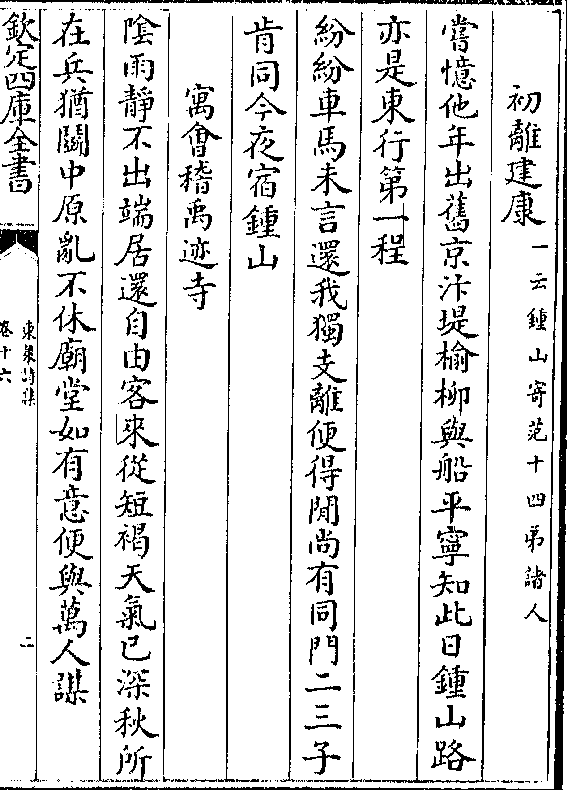 初離建康一云鍾山寄范十四弟諸人
嘗憶他年出舊京汴堤榆柳與船平寧知此日鍾山路
亦是東行第一程
紛紛車馬未言還我獨支離便得閒尚有同門二三子
肯同今夜宿鍾山
寓會稽禹迹寺
隂雨靜不出端居還自由客來從短褐天氣已深秋所
在兵猶鬭中原亂不休廟堂如有意便與萬人謀
欽定四庫全書
東萊詩集
卷十六
二